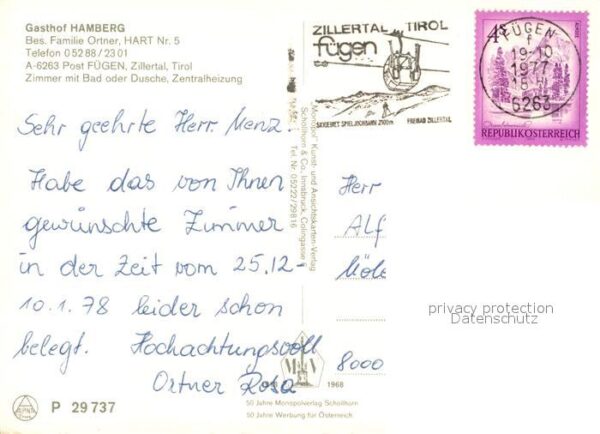 Gasthof HAMBERG
Bes. Familie Ortner, HART Nr. 5
Telefon 0 52 88 / 23 01
A-6263 Post FÜGEN, Zillertal, Tirol
Zimmer mit Bad oder Dusche, Zentralheizung
ZILLERTAL TIROL
fügen
SKIGEBIET SPIELJOCHBAHN 2100m FREIBAD ZILLERTAL
4S
REPUBLIK ÖSTERREICH
FÜGEN
f
19-10
1977
6263
Sehr geehrte Herr Menz.
Habe das von Ihnen
gewünschte Zimmer
in der Zeit vom 25.12-
10.1.78 leider schon
belegt. Hochachtungsvoll
Ortner Rosa
Monopol Kunst- und Ansichtskarten-Verlag
Schöllhorn & Co, Innsbruck, Colingasse
Tel. Nr. 05222/29816
Herr
Alf
Möle
8000
privacy protection
Datenschutz
1968
50 Jahre Monopolverlag Schöllhorn
50 Jahre Werbung für Österreich
P 29 737